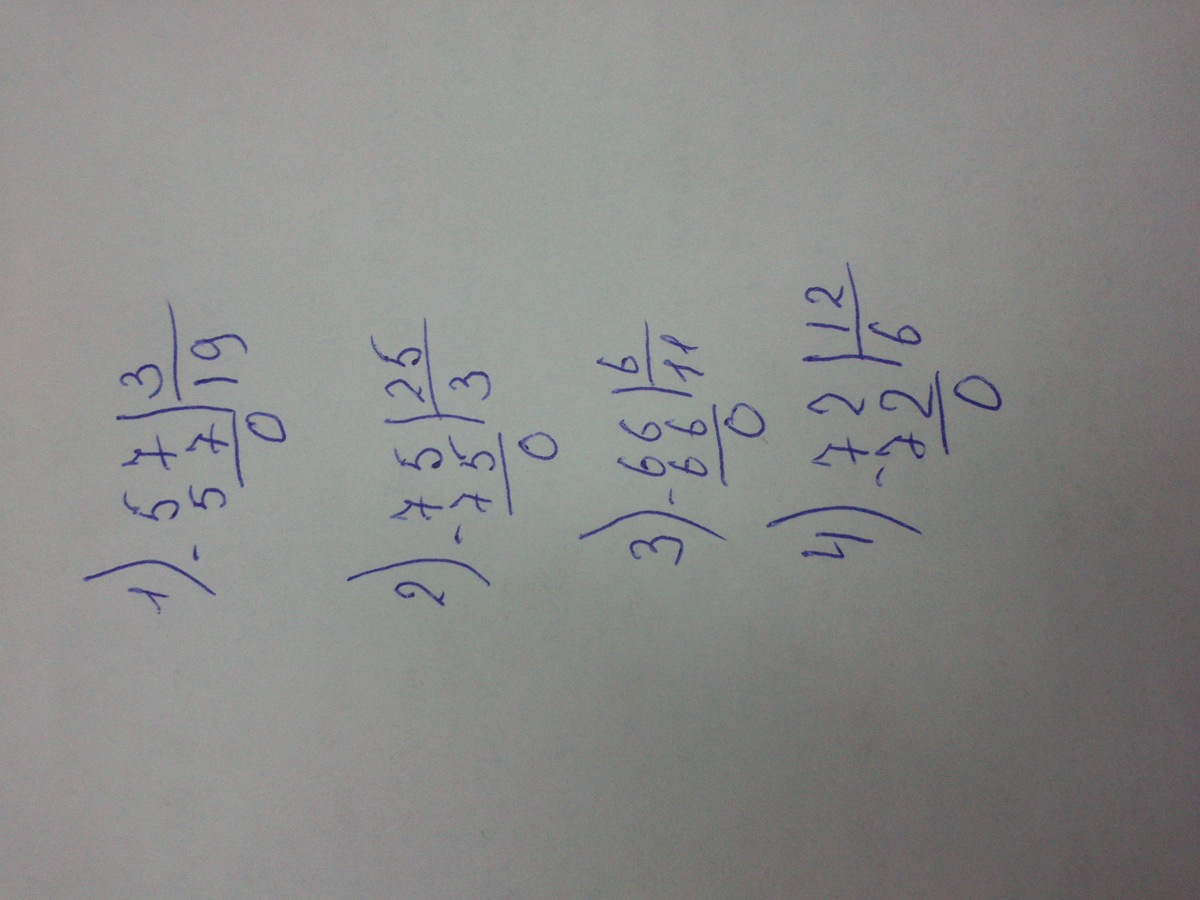 1) - 57 | 3
57 | 19
0
2) - 75 | 25
75 | 3
0
3) - 66 | 6
66 | 11
0
4) - 72 | 12
72 | 6
0